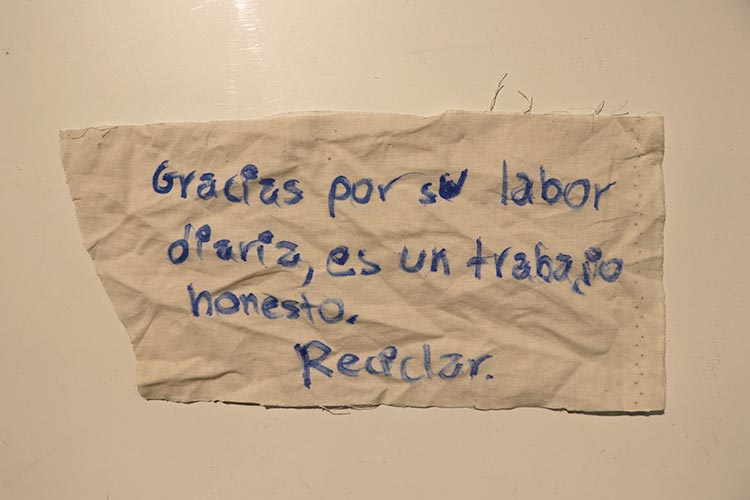 Gracias por su labor
diaria, es un trabajo
honesto.
Reciclar.